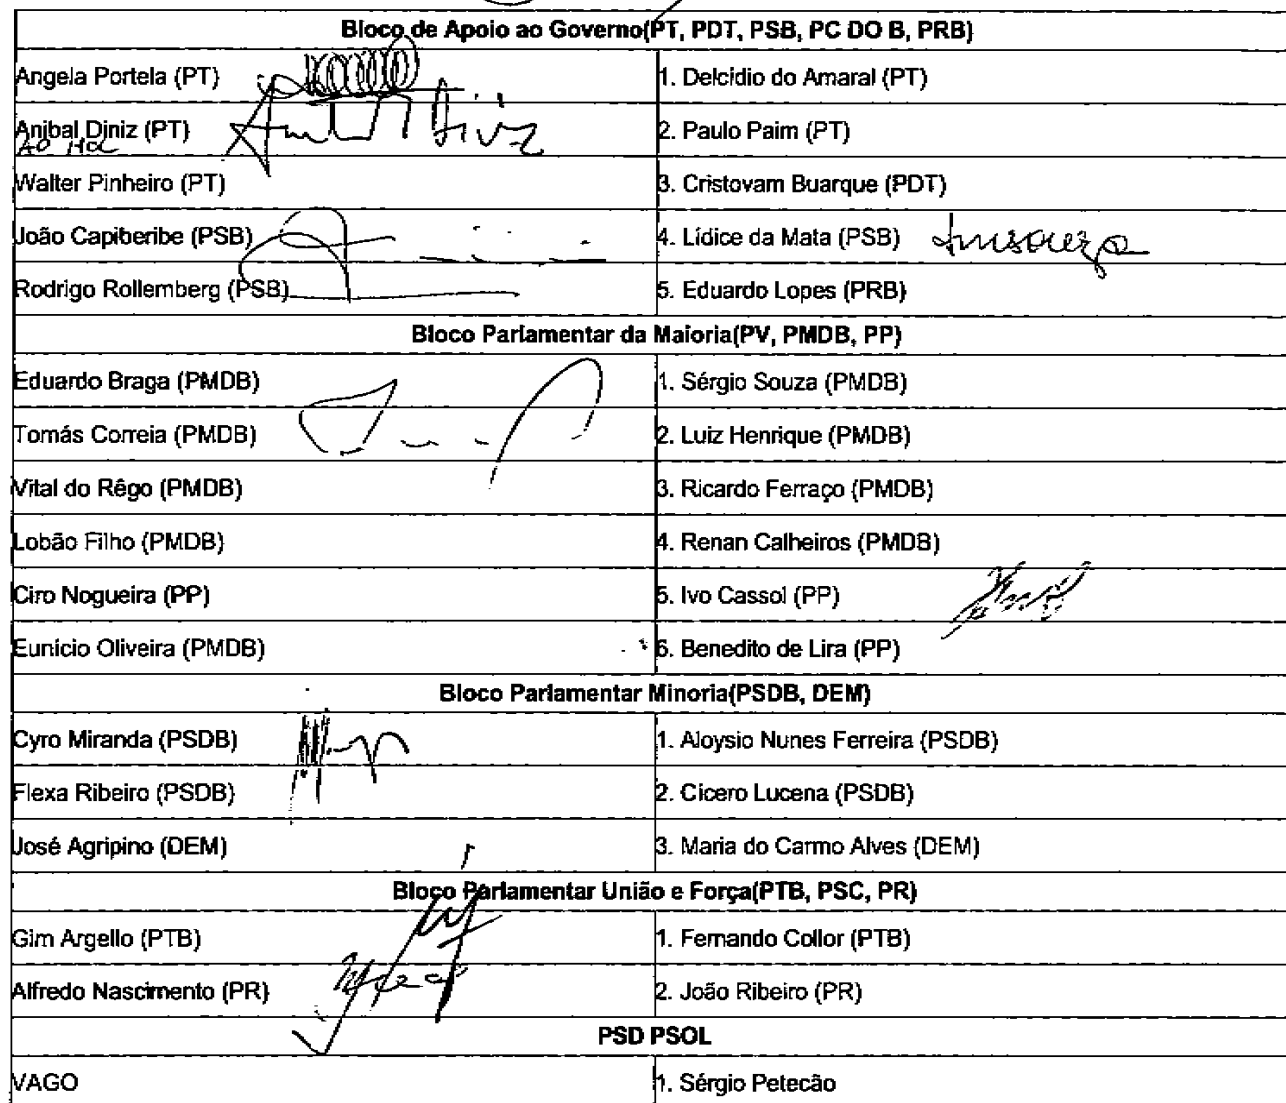 Bloco de Apoio ao Governo(PT, PDT, PSB, PC DO B, PRB)
Angela Portela (PT) 1. Delcídio do Amaral (PT)
Anibal Diniz (PT) 2. Paulo Paim (PT)
Walter Pinheiro (PT) 3. Cristovam Buarque (PDT)
João Capiberibe (PSB) 4. Lídice da Mata (PSB)
Rodrigo Rollemberg (PSB) 5. Eduardo Lopes (PRB)
Bloco Parlamentar da Maioria(PV, PMDB, PP)
Eduardo Braga (PMDB) 1. Sérgio Souza (PMDB)
Tomás Correia (PMDB) 2. Luiz Henrique (PMDB)
Vital do Rêgo (PMDB) 3. Ricardo Ferraço (PMDB)
Lobão Filho (PMDB) 4. Renan Calheiros (PMDB)
Ciro Nogueira (PP) 5. Ivo Cassol (PP)
Eunício Oliveira (PMDB) 6. Benedito de Lira (PP)
Bloco Parlamentar Minoria(PSDB, DEM)
Cyro Miranda (PSDB) 1. Aloysio Nunes Ferreira (PSDB)
Flexa Ribeiro (PSDB) 2. Cícero Lucena (PSDB)
José Agripino (DEM) 3. Maria do Carmo Alves (DEM)
Bloco Parlamentar União e Força(PTB, PSC, PR)
Gim Argello (PTB) 1. Fernando Collor (PTB)
Alfredo Nascimento (PR) 2. João Ribeiro (PR)
PSD PSOL
VAGO 1. Sérgio Petecão